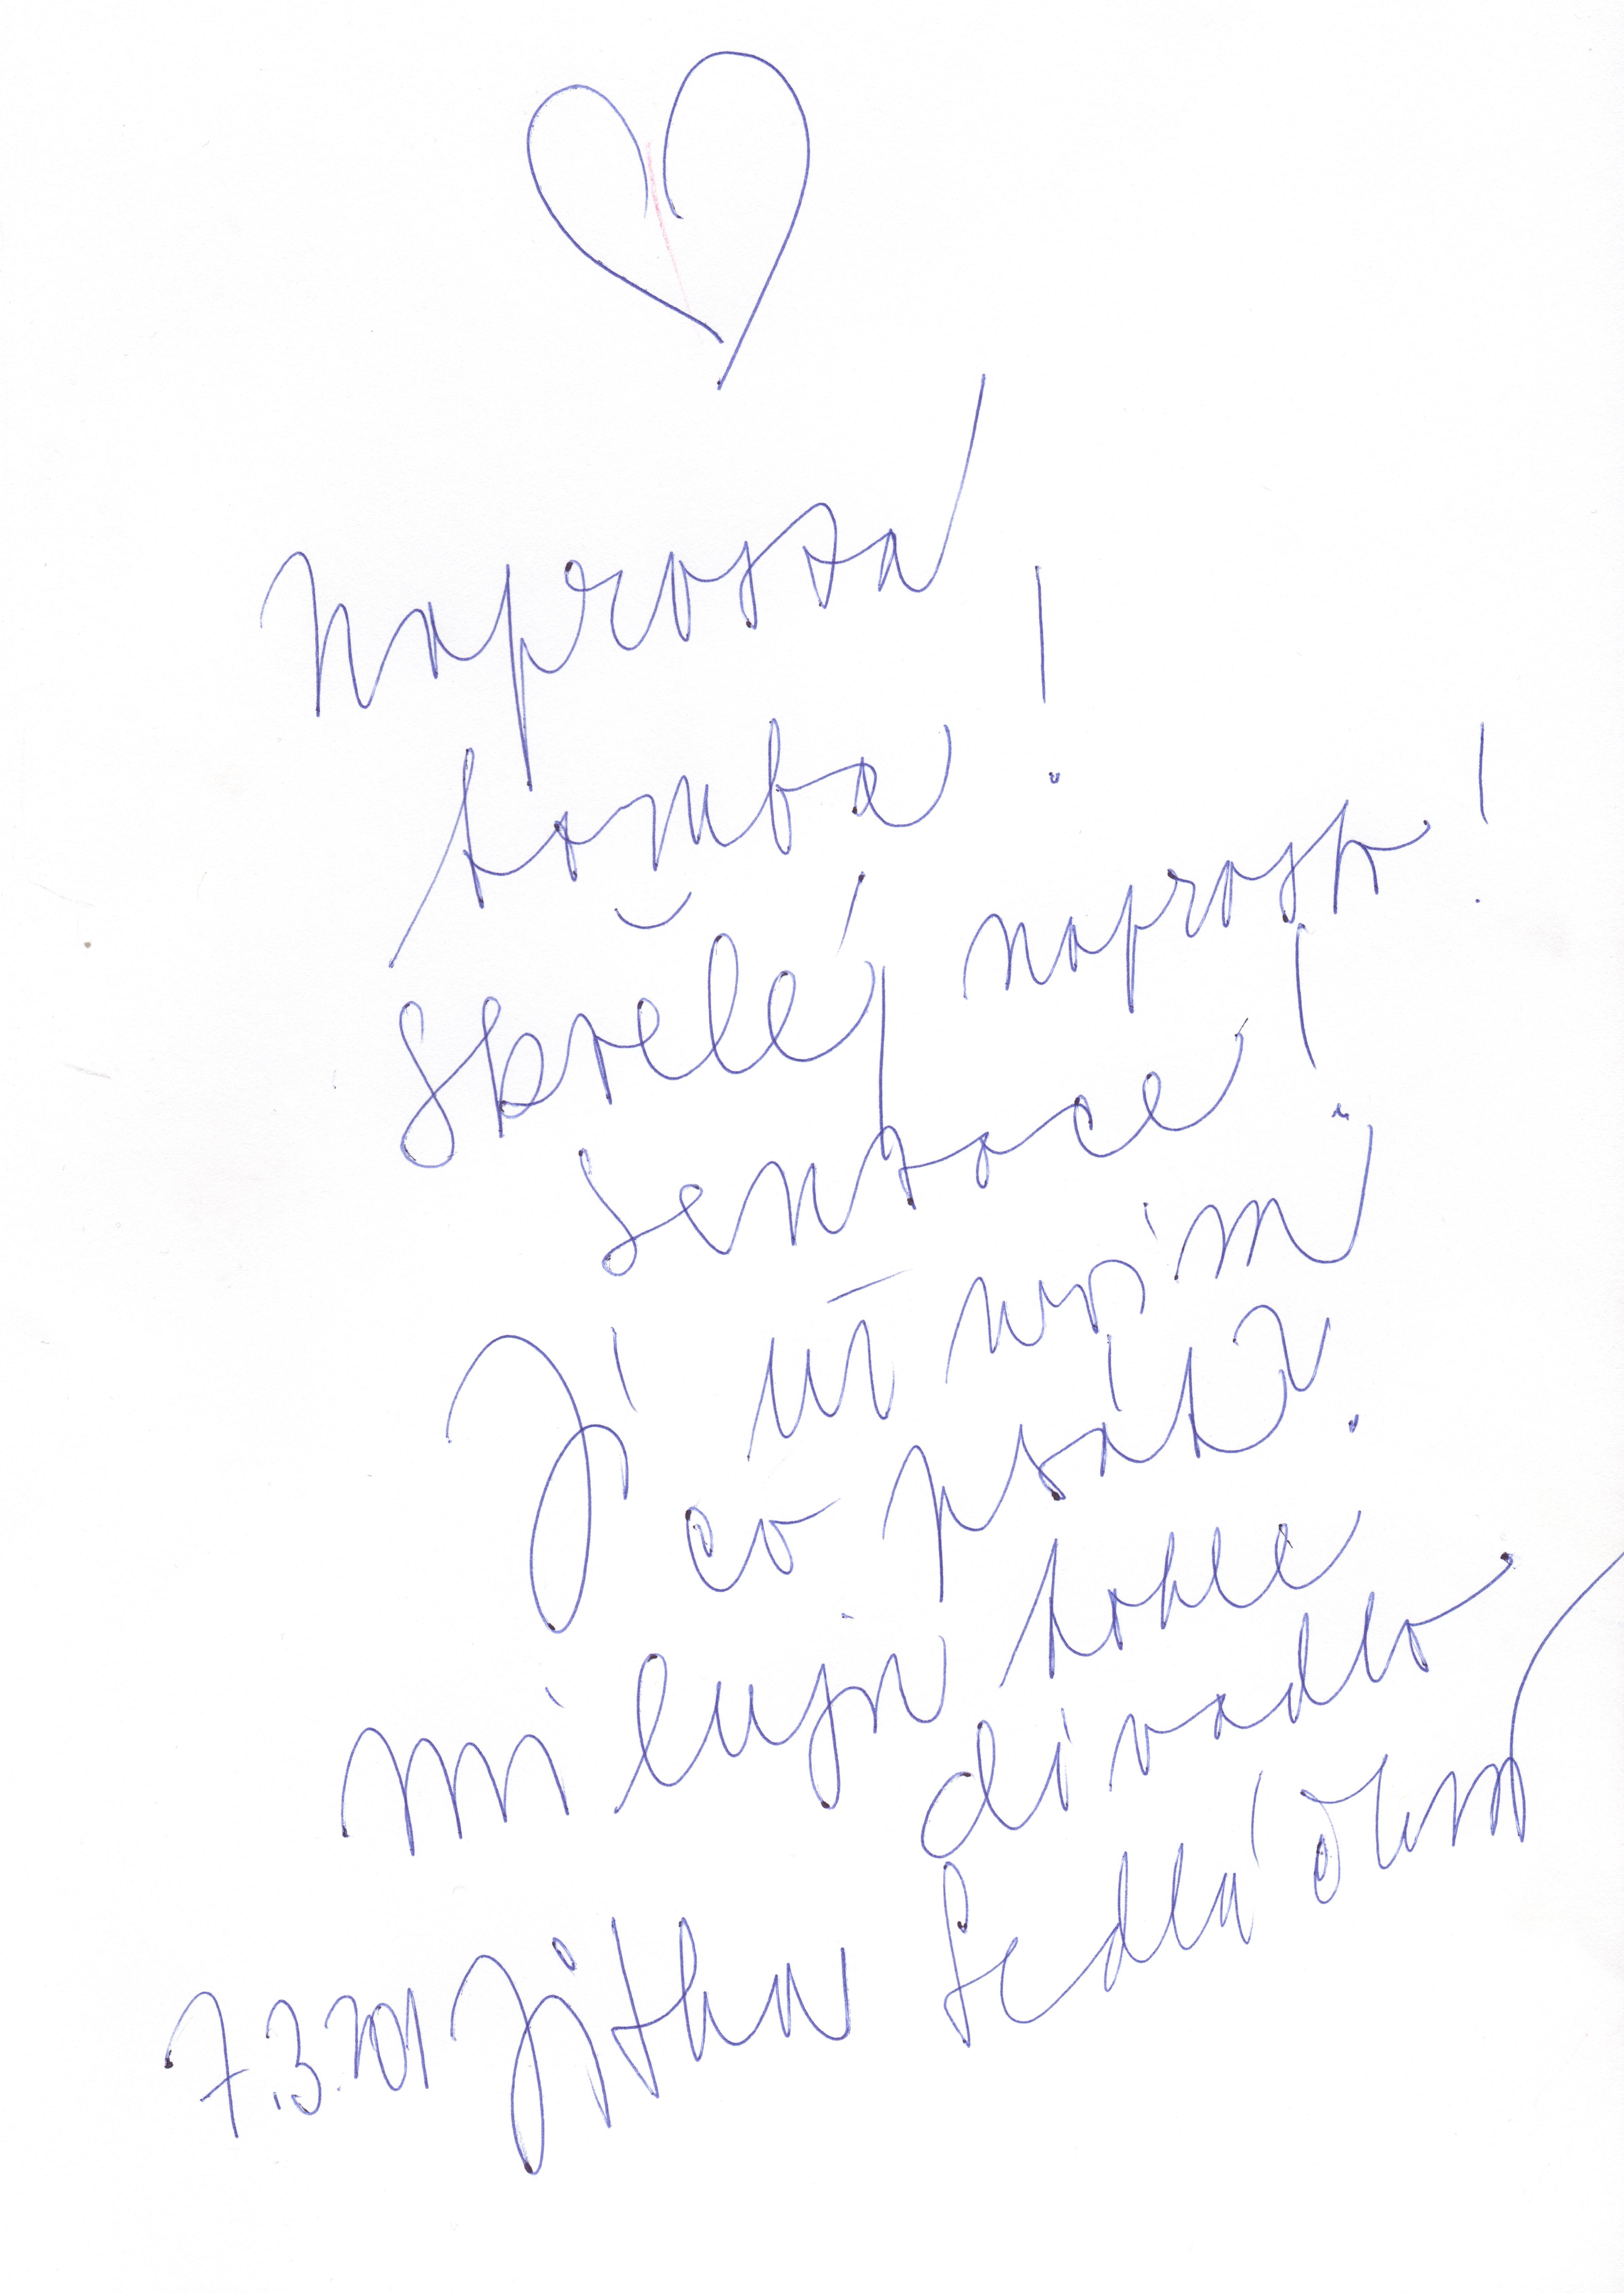 Naprostá
bomba!
Skvělé, naprosto!
senzace!
Já už nevím
co psát?
Miluju tohle
divadlo
7.3.201 Jitka Sedláčková